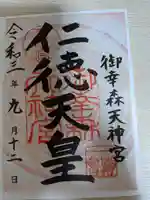 御幸森天神宮
仁徳天皇
令和三年九月十二日